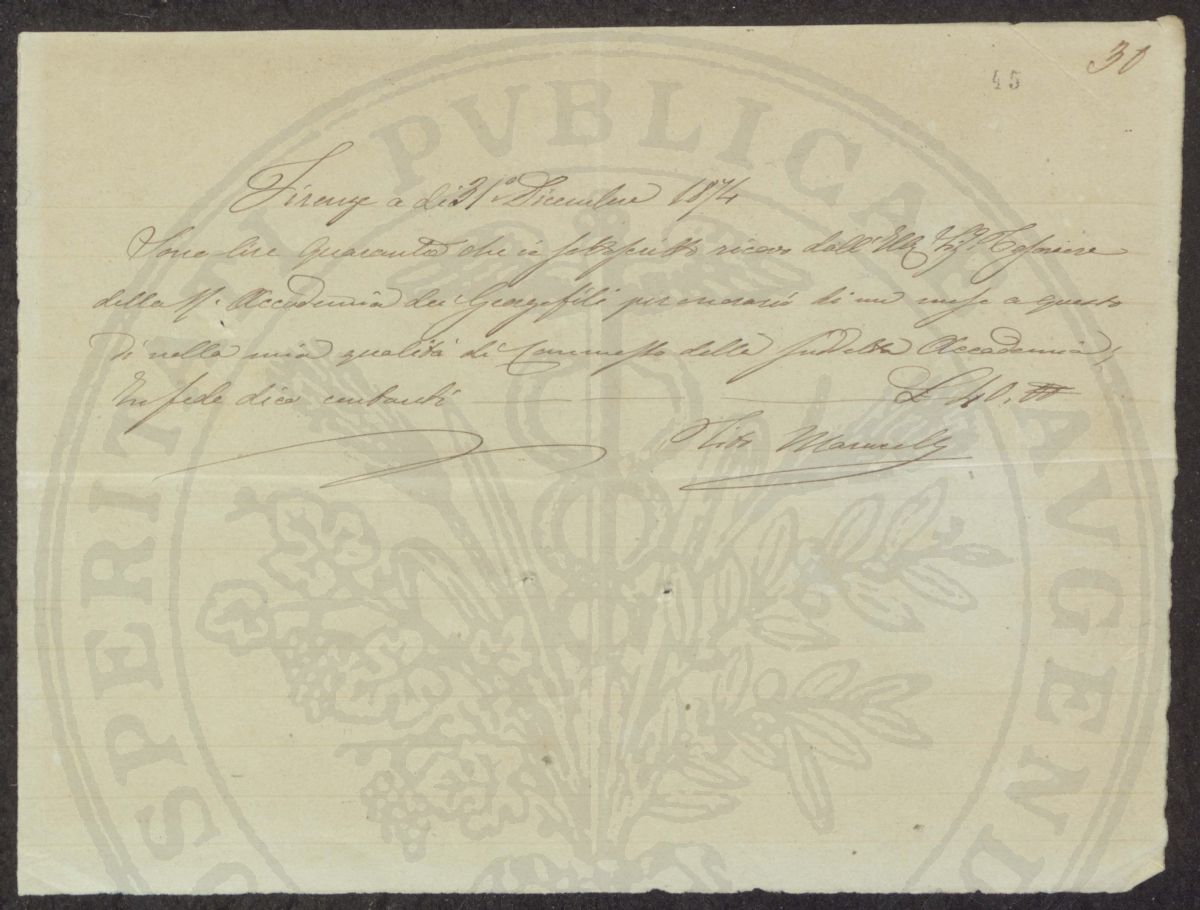 30
45
Firenze a dì 31 Dicembre 1874
Sono lire quaranta che io sottoscritto ricevo dall' Tesoriere
della R. Accademia dei Georgofili per onorario di un mese a questo
dì nella mia qualità di Commesso della suddetta Accademia,
In fede dico contanti L 40.
Marucelli
PROSPERITATI PVBLICAE AVGENDAE